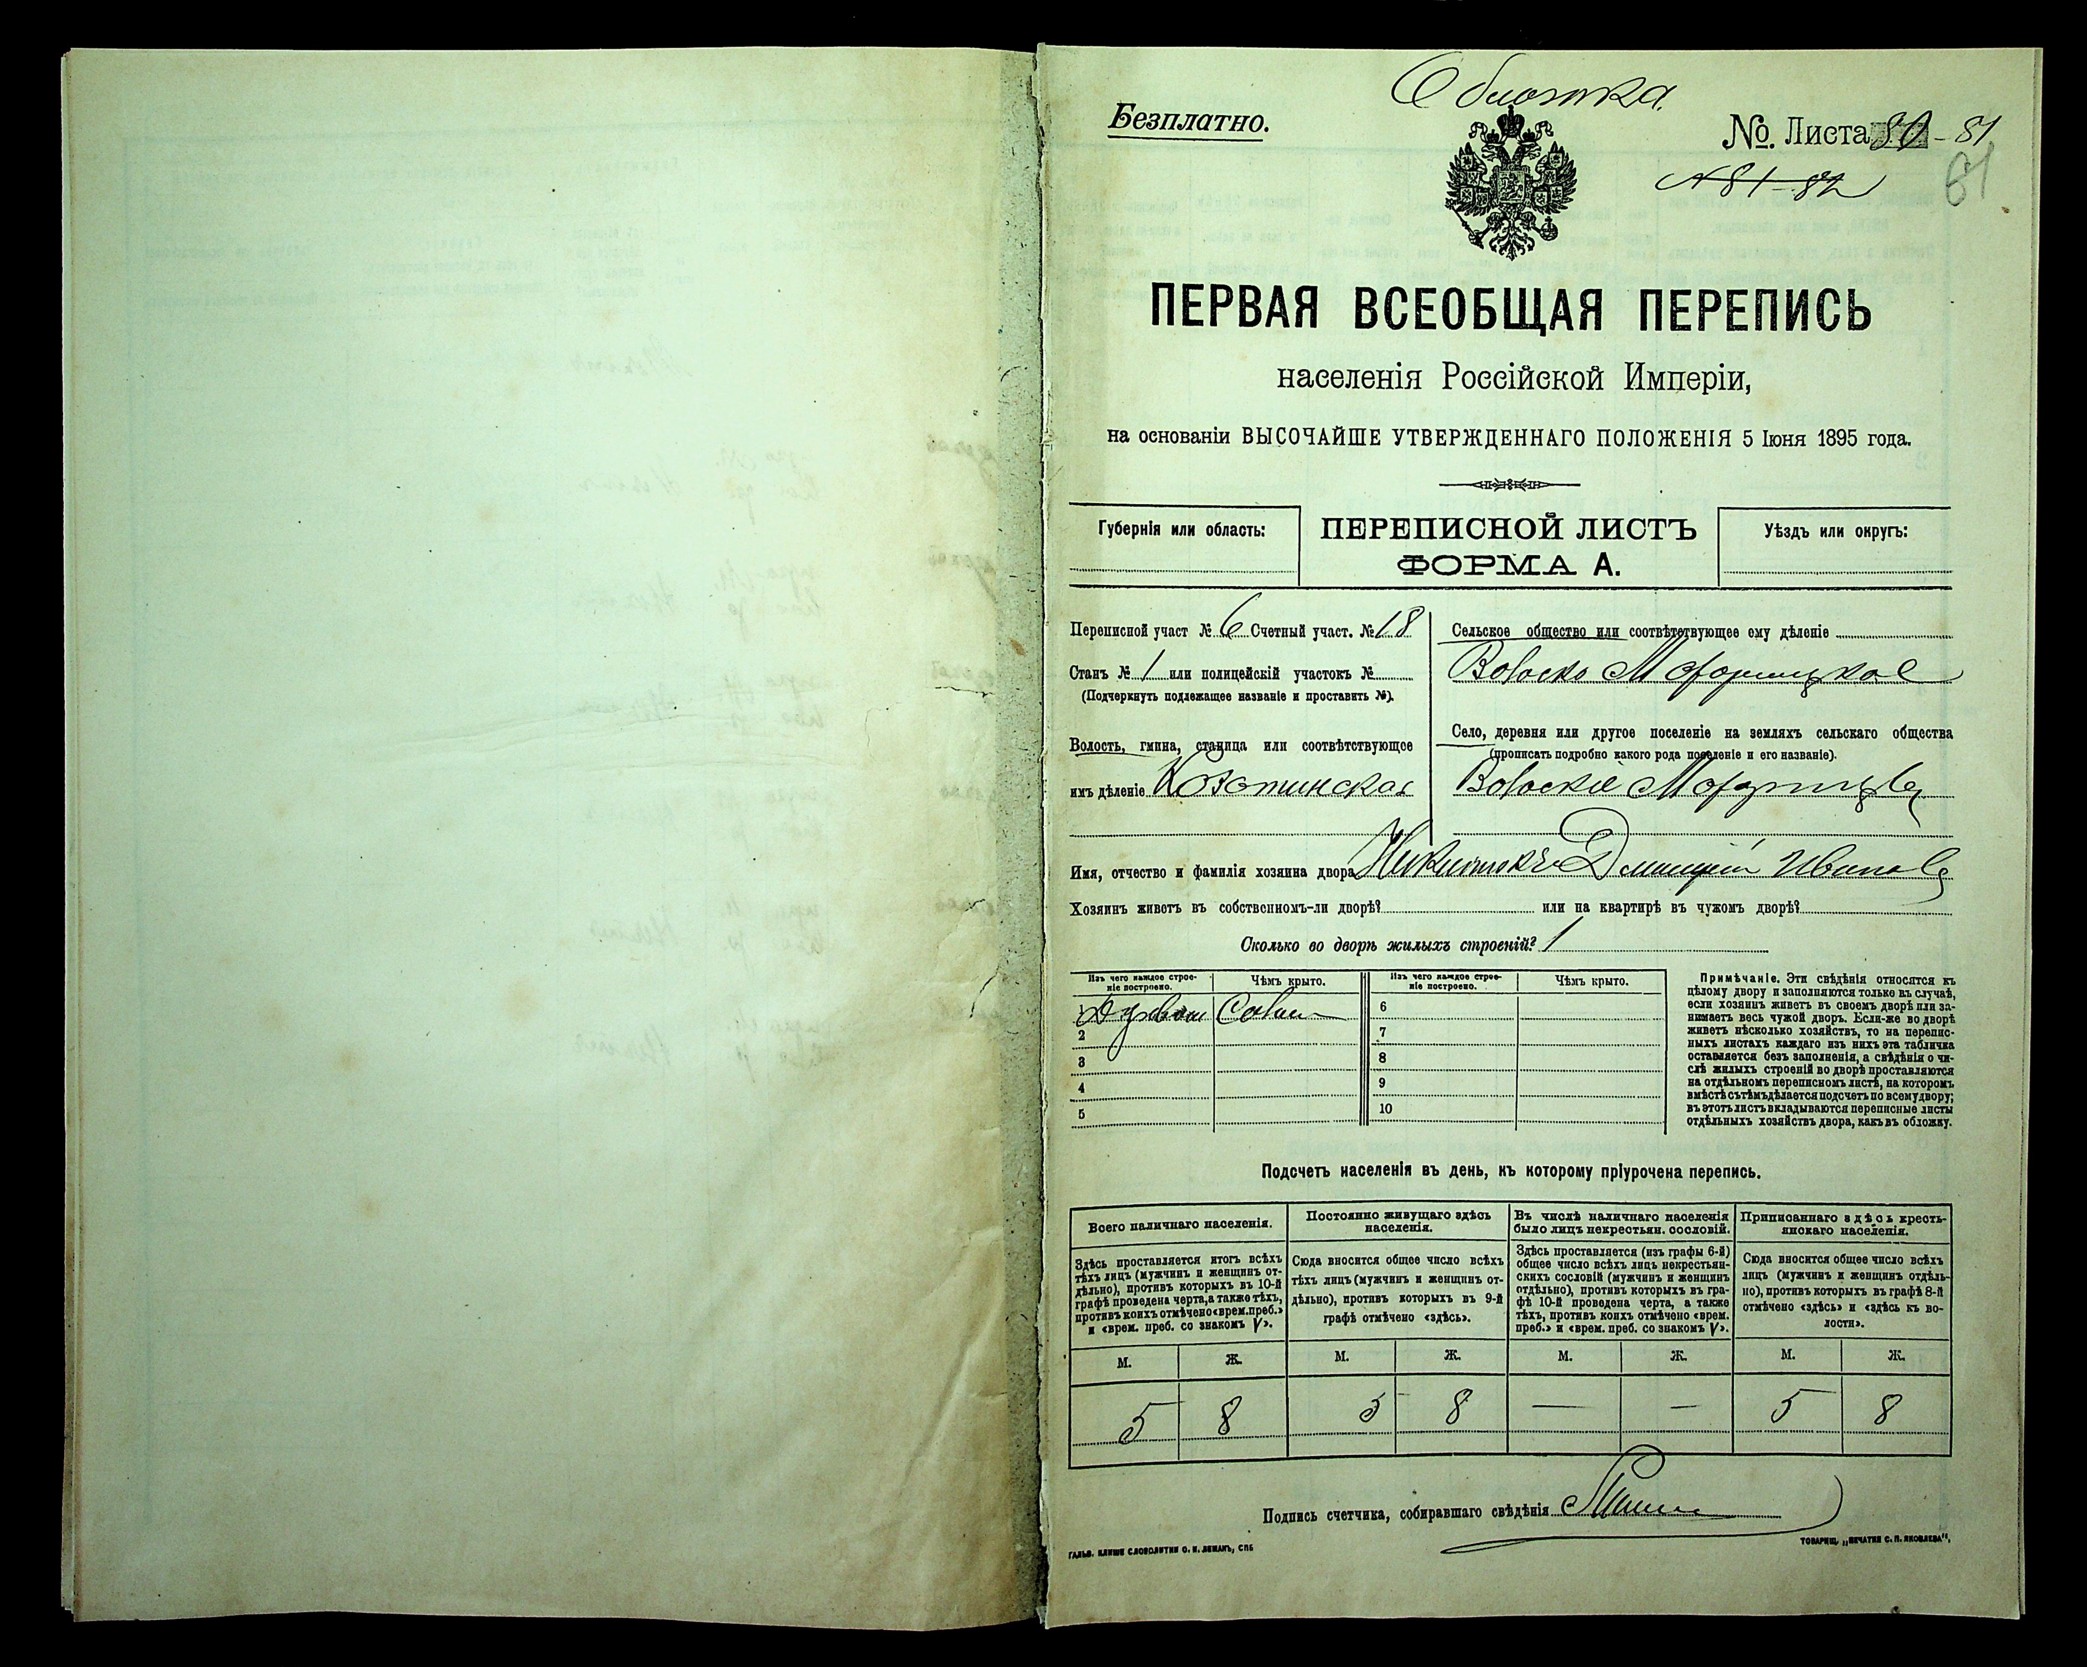 Обложка.
Безплатно.
№. Листа 80 - 81
№ 81-82
61
ПЕРВАЯ ВСЕОБЩАЯ ПЕРЕПИСЬ
населенія Россійской Имперіи,
на основаніи ВЫСОЧАЙШЕ УТВЕРЖДЕННАГО ПОЛОЖЕНІЯ 5 Іюня 1895 года.
Губернія или область:
ПЕРЕПИСНОЙ ЛИСТЪ
ФОРМА А.
Уѣздъ или округъ:
Переписной участ № 6 Счетный участ. № 18
Станъ № 1 или полицейскій участокъ №
(Подчеркнуть подлежащее названіе и проставить №).
Волость, гмина, станица или соотвѣтствующее
имъ дѣленіе
Сельское общество или соотвѣтствующее ему дѣленіе
Село, деревня или другое поселеніе на земляхъ сельскаго общества
(прописать подробно какого рода поселеніе и его названіе).
Имя, отчество и фамилія хозяина двора Дмитрій Иванов
Хозяинъ живетъ въ собственномъ-ли дворѣ? или на квартирѣ въ чужомъ дворѣ?
Сколько во дворѣ жилыхъ строеній? 1
Изъ чего каждое строе-
ніе построено.
Чѣмъ крыто.
Изъ чего каждое строе-
ніе построено.
Чѣмъ крыто.
2
3
4
5
6
7
8
9
10
Примѣчаніе. Эти свѣдѣнія относятся къ
цѣлому двору и заполняются только въ случаѣ,
если хозяинъ живетъ въ своемъ дворѣ или за-
нимаетъ весь чужой дворъ. Если-же во дворѣ
живетъ нѣсколько хозяйствъ, то на перепис-
ныхъ листахъ каждаго изъ нихъ эта табличка
оставляется безъ заполненія, а свѣдѣнія о чи-
слѣ жилыхъ строеній во дворѣ проставляются
на отдѣльномъ переписномъ листѣ, на которомъ
вмѣстѣ съ тѣмъ дѣлается подсчетъ по всему двору;
въ этотъ листъ вкладываются переписные листы
отдѣльныхъ хозяйствъ двора, какъ въ обложку.
Подсчетъ населенія въ день, къ которому пріурочена перепись.
Всего наличнаго населенія.
Здѣсь проставляется итогъ всѣхъ
тѣхъ лицъ (мужчинъ и женщинъ от-
дѣльно), противъ которыхъ въ 10-й
графѣ проведена черта, а также тѣхъ,
противъ коихъ отмѣчено «врем. преб.»
и «врем. преб. со знакомъ V».
Постоянно живущаго здѣсь
населенія.
Сюда вносится общее число всѣхъ
тѣхъ лицъ (мужчинъ и женщинъ от-
дѣльно), противъ которыхъ въ 9-й
графѣ отмѣчено «здѣсь».
Въ числѣ наличнаго населенія
было лицъ некрестьян. сословій.
Здѣсь проставляется (изъ графы 6-й)
общее число всѣхъ лицъ некрестьян-
скихъ сословій (мужчинъ и женщинъ
отдѣльно), противъ которыхъ въ гра-
фѣ 10-й проведена черта, а также
тѣхъ, противъ коихъ отмѣчено «врем.
преб.» и «врем. преб. со знакомъ V».
Приписаннаго здѣсь кресть-
янскаго населенія.
Сюда вносится общее число всѣхъ
лицъ (мужчинъ и женщинъ отдѣль-
но), противъ которыхъ въ графѣ 8-й
отмѣчено «здѣсь» и «здѣсь къ во-
лости».
М. Ж. М. Ж. М. Ж. М. Ж.
5 8 5 8 — — 5 8
Подпись счетчика, собиравшаго свѣдѣнія
ГАЛЬВ. КЛИШЕ СЛОВОЛИТНИ О. И. ЛЕМАНЪ, СПБ
ТОВАРИЩ. „ПЕЧАТНЯ С. П. ЯКОВЛЕВА",